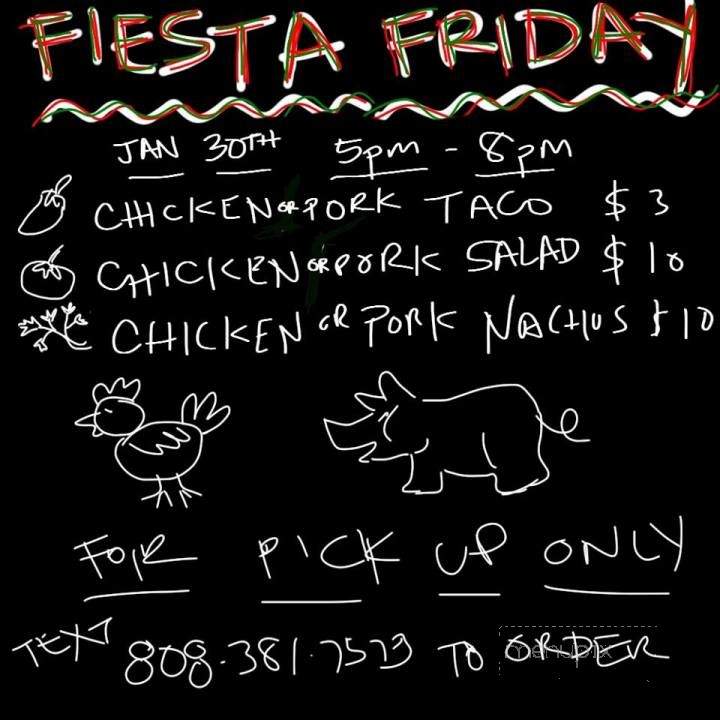 FIESTA FRIDAY
JAN 30TH 5pm - 8pm
CHICKEN OR PORK TACO $3
CHICKEN OR PORK SALAD $10
CHICKEN OR PORK NACHOS $10
FOR PICK UP ONLY
TEXT 808.381.7573 TO ORDER
menupix